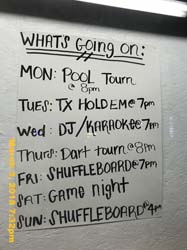 WHAT'S GOing on:
MON: POOL Tourn
@ 8pm
TUES: TX HOLDEM @ 7pm
Wed: DJ/KARAOKE @ 7pm
Thurs: Dart tourn @ 8pm
FRI: SHUFFLEBOARD @ 7pm
SAT: GAME night
SUN: SHUFFLEBOARD @ 4pm